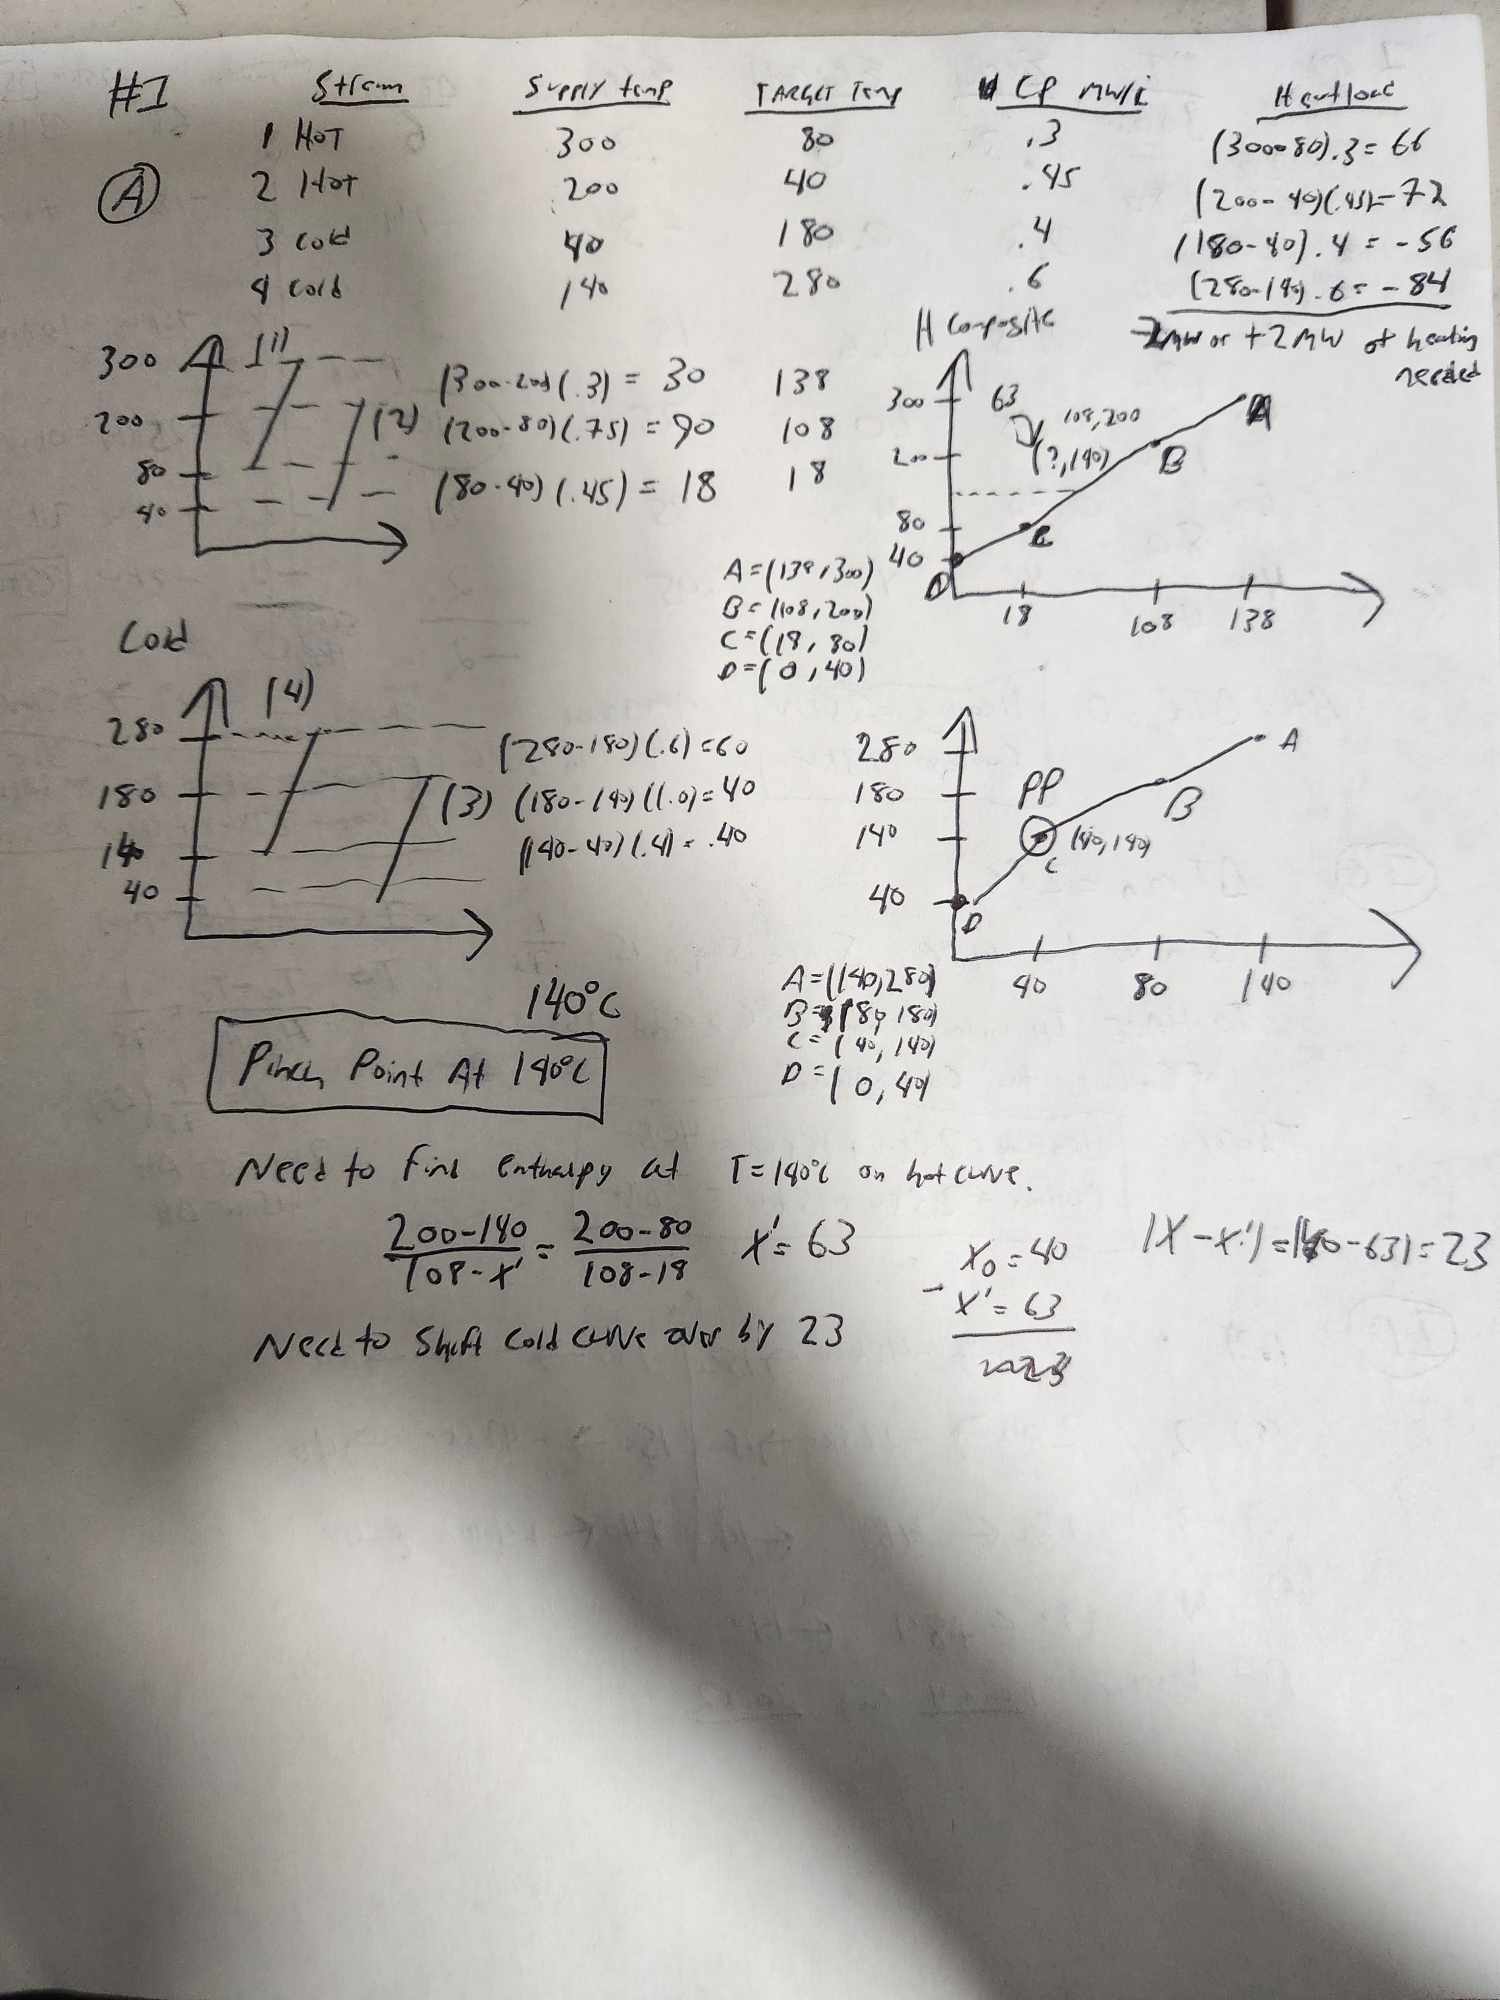 #1 Stream Supply temp TARGET Temp CP MW/C Heatload
1 HOT 300 80 .3 (300-80).3 = 66
(A) 2 Hot 200 40 .45 (200-40)(.45)=72
3 cold 40 180 .4 (180-40).4 = -56
4 cold 140 280 .6 (280-140).6 = -84
-2MW or +2MW of heating needed
H Composite
300 (1) (300-200)(.3) = 30 138
200 (2) (200-80)(.75) = 90 108
80
40 (80-40)(.45) = 18 18
300 63 108,200 A
200 (?,140) B
80 C
40 D
18 108 138
A=(138,300)
B=(108,200)
C=(18,80)
D=(0,40)
Cold
280 (4) (280-180)(.6)=60
180 (3) (180-140)(1.0)=40
140 (140-40)(.4)=.40
40
280 A
180 PP B
140 (40,140) C
40 D
40 80 140
A=(140,280)
B=(80,180)
C=(40,140)
D=(0,40)
140°C
Pinch Point At 140°C
Need to find enthalpy at T=140°C on hot curve.
200-140/108-x' = 200-80/108-18 x'=63 x₀=40 |x-x'|=|40-63|=23
- x'=63
Need to shift cold curve over by 23